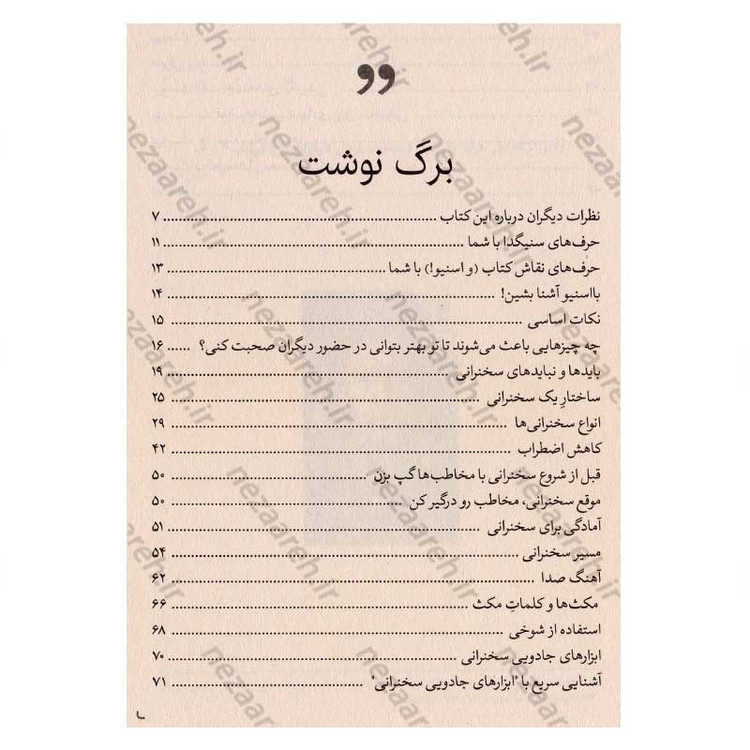 ”
برگ نوشت
نظرات دیگران درباره این کتاب ........ ۷
حرف‌های سنیگدا با شما ........ ۱۱
حرف‌های نقاش کتاب (و اسنیو!) با شما ........ ۱۳
بااسنیو آشنا بشین! ........ ۱۴
نکات اساسی ........ ۱۵
چه چیزهایی باعث می‌شوند تا تو بهتر بتوانی در حضور دیگران صحبت کنی؟ ...... ۱۶
بایدها و نبایدهای سخنرانی ........ ۱۹
ساختارِ یک سخنرانی ........ ۲۵
انواع سخنرانی‌ها ........ ۲۹
کاهش اضطراب ........ ۴۲
قبل از شروع سخنرانی با مخاطب‌ها گپ بزن ........ ۵۰
موقع سخنرانی، مخاطب رو درگیر کن ........ ۵۰
آمادگی برای سخنرانی ........ ۵۱
مسیر سخنرانی ........ ۵۴
آهنگ صدا ........ ۶۲
مکث‌ها و کلماتِ مکث ........ ۶۶
استفاده از شوخی ........ ۶۸
ابزارهای جادویی سخنرانی ........ ۷۰
آشنایی سریع با "ابزارهای جادویی سخنرانی" ........ ۷۱
nezaareh.ir